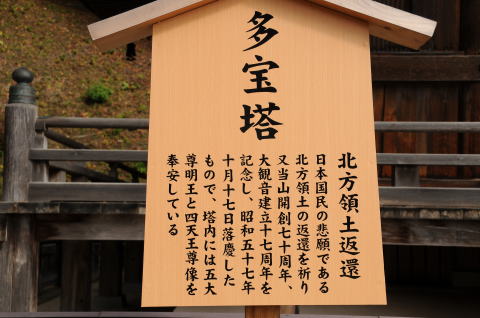 多宝塔
北方領土返還
日本国民の悲願である
北方領土の返還を祈り
又当山開創七十周年、
大観音建立十七周年を
記念し、昭和五十七年
十月十七日落慶した
もので、塔内には五大
尊明王と四天王尊像を
奉安している